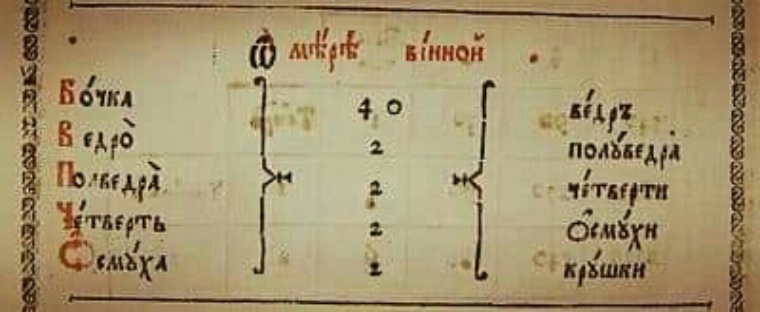 Ѿ мѣ́рѣ ві́нной
Бо́чка 40 ве́дръ
Ведро̀ 2 полꙋ́ведра̀
Полведра̀ 2 че́тверти
Че́тверть 2 Ѻсмꙋ́хи
Ѻсмꙋ́ха 2 крꙋ́шки